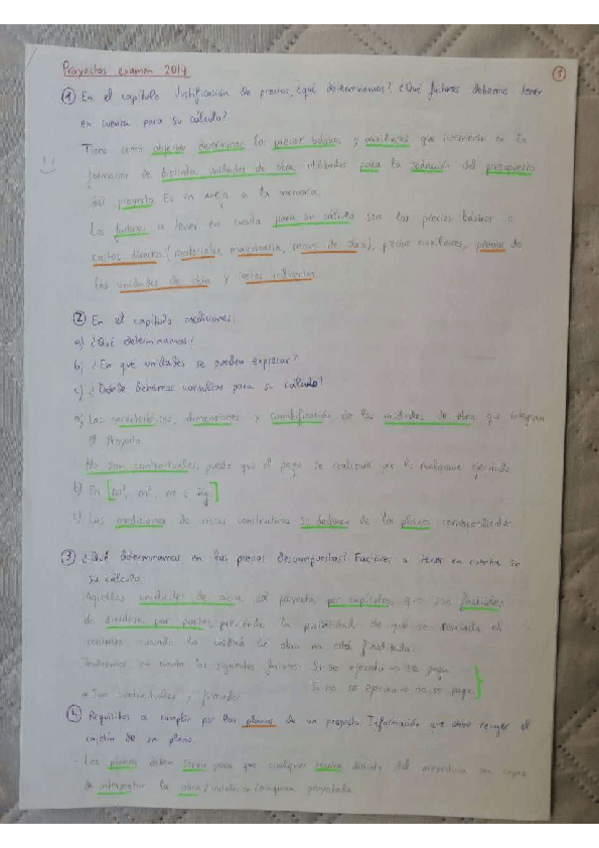 Proyectos examen 2017
1
① En el capítulo Justificación de precios, ¿qué determinamos? ¿Qué factores debemos tener
en cuenta para su cálculo?
Tiene como objetivo determinar los precios básicos y auxiliares que intervienen en la
formación de distintas unidades de obra utilizadas para la redacción del presupuesto
del proyecto. Es un anejo a la memoria.
Los factores a tener en cuenta para su cálculo son los precios básicos o
costes directos (materiales, maquinaria, mano de obra), precios auxiliares, precios de
las unidades de obra y costes indirectos.
② En el capítulo mediciones:
a) ¿Qué determinamos?
b) ¿En qué unidades se pueden expresar?
c) ¿Dónde debemos consultar para su cálculo?
a) Las características, dimensiones y cuantificación de las unidades de obra que integran
el Proyecto.
No son contractuales, puede que el pago se realice por lo realmente ejecutado
b) En [m³, m², m o kg]
c) Las mediciones de se deducen de los planos correspondientes
③ ¿Qué determinamos en los precios descompuestos? Factores a tener en cuenta en
su cálculo.
Aquellas unidades de obra del proyecto, por capítulos, que son
de dividirse por partes, previendo la posibilidad de que se rescinda el
contrato cuando la unidad de obra no está finalizada.
Tendremos en cuenta los siguientes factores: Si se ejecuta → se paga
Si no se ejecuta → no se paga
* Son contractuales y
④ Requisitos a cumplir por los planos de un proyecto. Información que debe recoger el
cajetín de un plano.
- Los planos deben para que cualquier técnico distinto del proyectista sea capaz
de interpretar la obra / instalación / máquina proyectada.